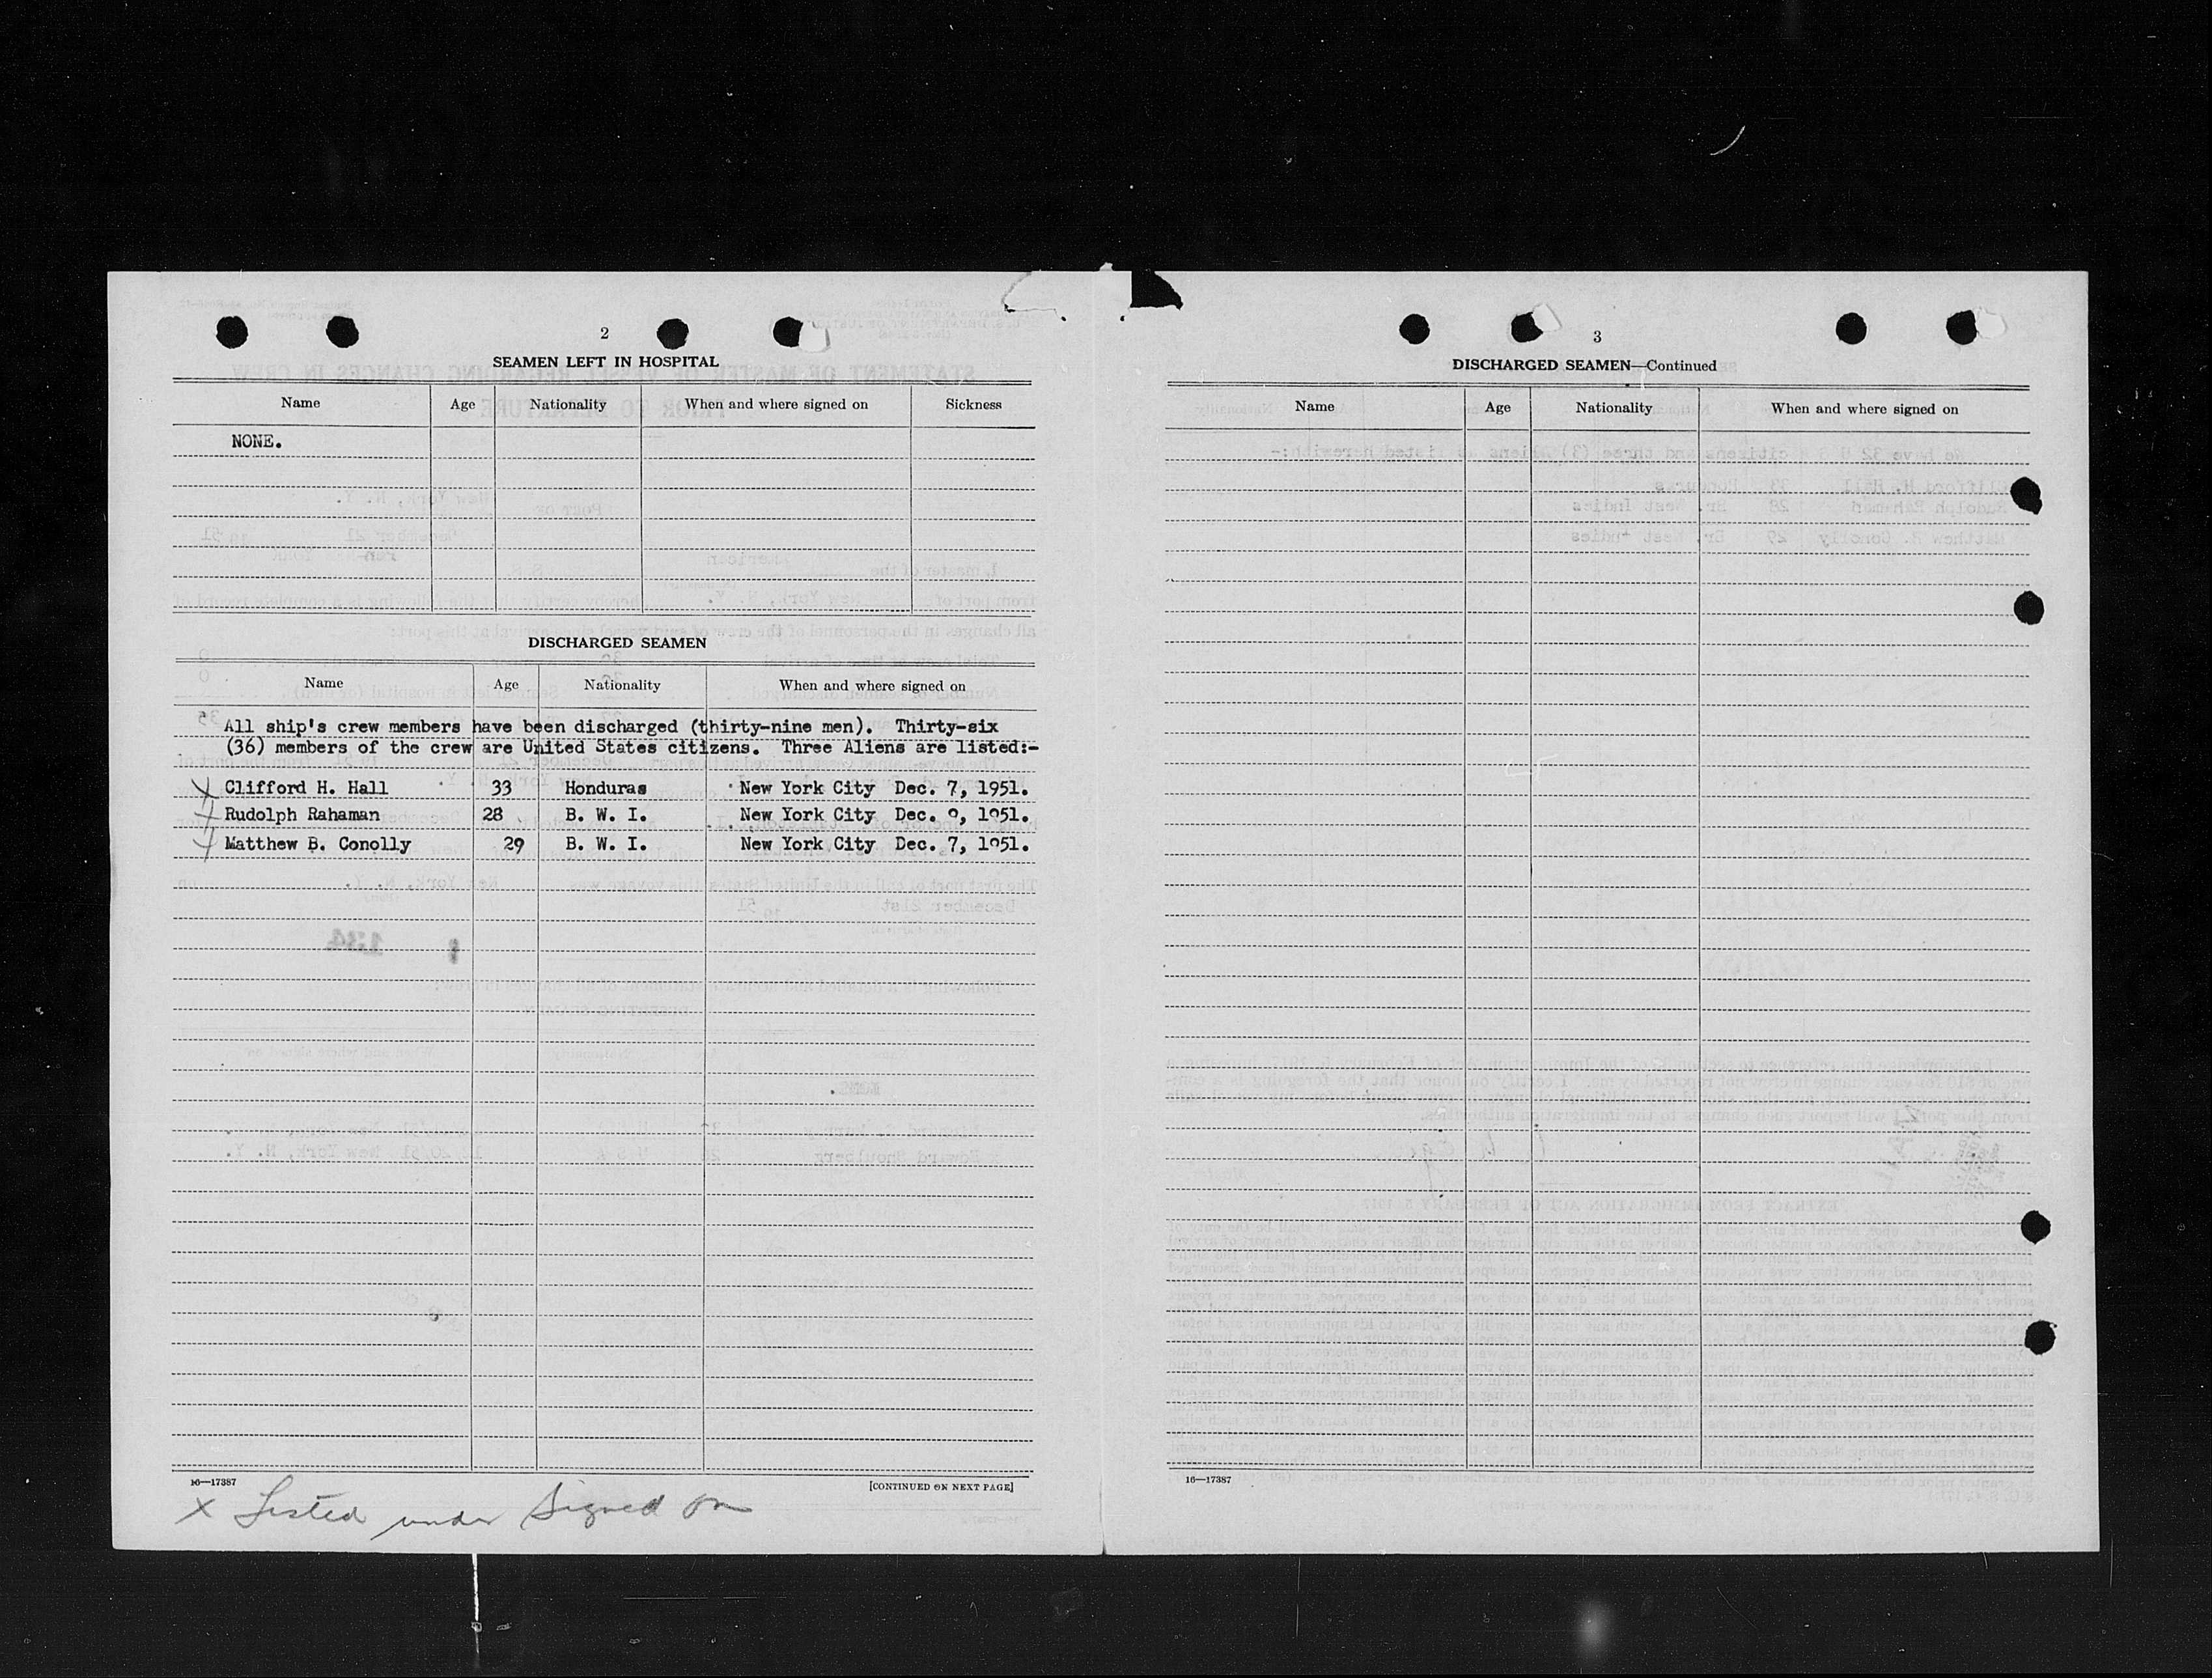 2
SEAMEN LEFT IN HOSPITAL
Name Age Nationality When and where signed on Sickness
NONE.
DISCHARGED SEAMEN
Name Age Nationality When and where signed on
All ship's crew members have been discharged (thirty-nine men). Thirty-six
(36) members of the crew are United States citizens. Three Aliens are listed:-
X Clifford H. Hall 33 Honduras New York City Dec. 7, 1951.
X Rudolph Rahaman 28 B. W. I. New York City Dec. 9, 1951.
X Matthew B. Conolly 29 B. W. I. New York City Dec. 7, 1951.
16—17387 [CONTINUED ON NEXT PAGE]
X Listed under Signed on
3
DISCHARGED SEAMEN—Continued
Name Age Nationality When and where signed on
16—17387